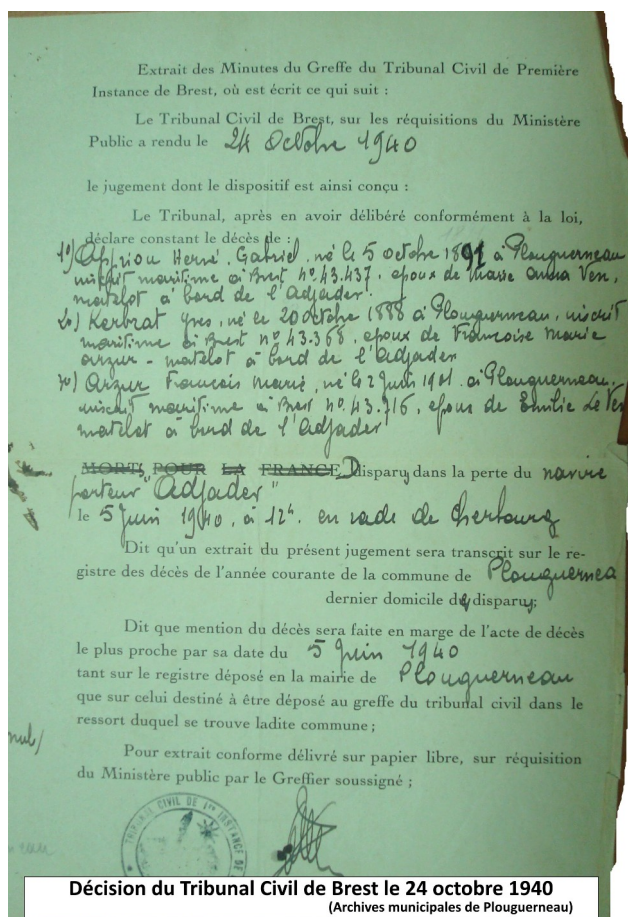 Extrait des Minutes du Greffe du Tribunal Civil de Première
Instance de Brest, où est écrit ce qui suit :
Le Tribunal Civil de Brest, sur les réquisitions du Ministère
Public a rendu le 24 Octobre 1940
le jugement dont le dispositif est ainsi conçu :
Le Tribunal, après en avoir délibéré conformément à la loi,
déclare constant le décès de :
1º) Appriou Hervé, Gabriel, né le 5 octobre 1891 à Plouguerneau
inscrit maritime à Brest nº 43.437, époux de Marie Anna Ven,
matelot à bord de l'Adjader.
2º) Kerbrat Yves, né le 20 octobre 1888 à Plouguerneau, inscrit
maritime à Brest nº 43.368, époux de Françoise Marie
Arzur - matelot à bord de l'Adjader
3º) Arzur François Marie, né le 2 Juin 1901 à Plouguerneau,
inscrit maritime à Brest nº 43.716, époux de Emilie Le Ven
matelot à bord de l'Adjader
MORTS POUR LA FRANCE Disparus dans la perte du navire
porteur "Adjader"
le 5 Juin 1940, à 12h. en rade de Cherbourg
Dit qu'un extrait du présent jugement sera transcrit sur le re-
gistre des décès de l'année courante de la commune de Plouguernea
dernier domicile des disparus;
Dit que mention du décès sera faite en marge de l'acte de décès
le plus proche par sa date du 5 Juin 1940
tant sur le registre déposé en la mairie de Plouguerneau
que sur celui destiné à être déposé au greffe du tribunal civil dans le
ressort duquel se trouve ladite commune ;
nul/
Pour extrait conforme délivré sur papier libre, sur réquisition
du Ministère public par le Greffier soussigné ;
TRIBUNAL CIVIL DE 1re INSTANCE DE
Décision du Tribunal Civil de Brest le 24 octobre 1940
(Archives municipales de Plouguerneau)